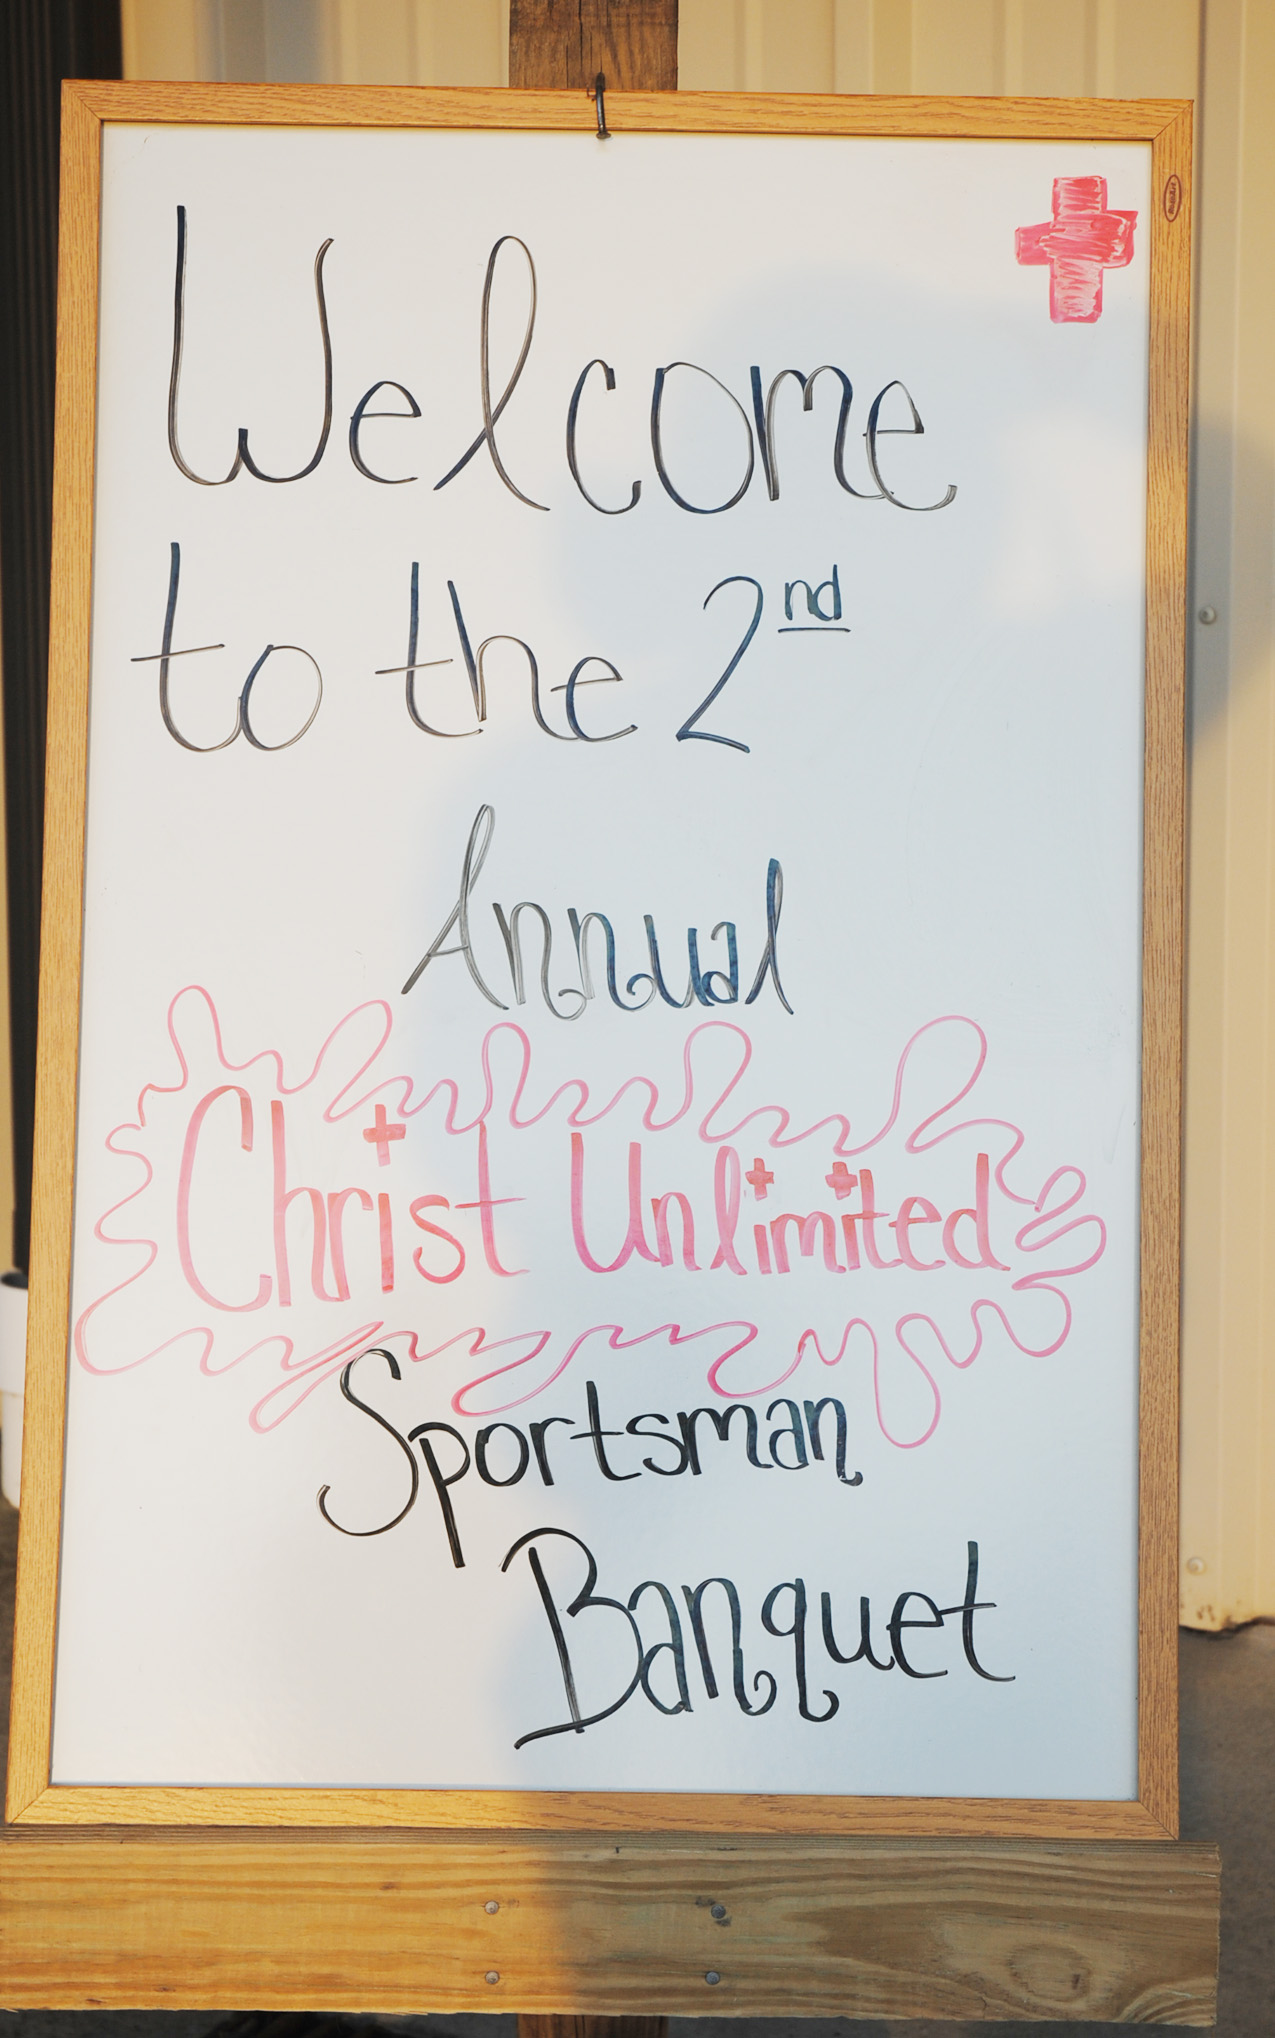 Welcome
to the 2nd
Annual
Christ Unlimited
Sportsman
Banquet